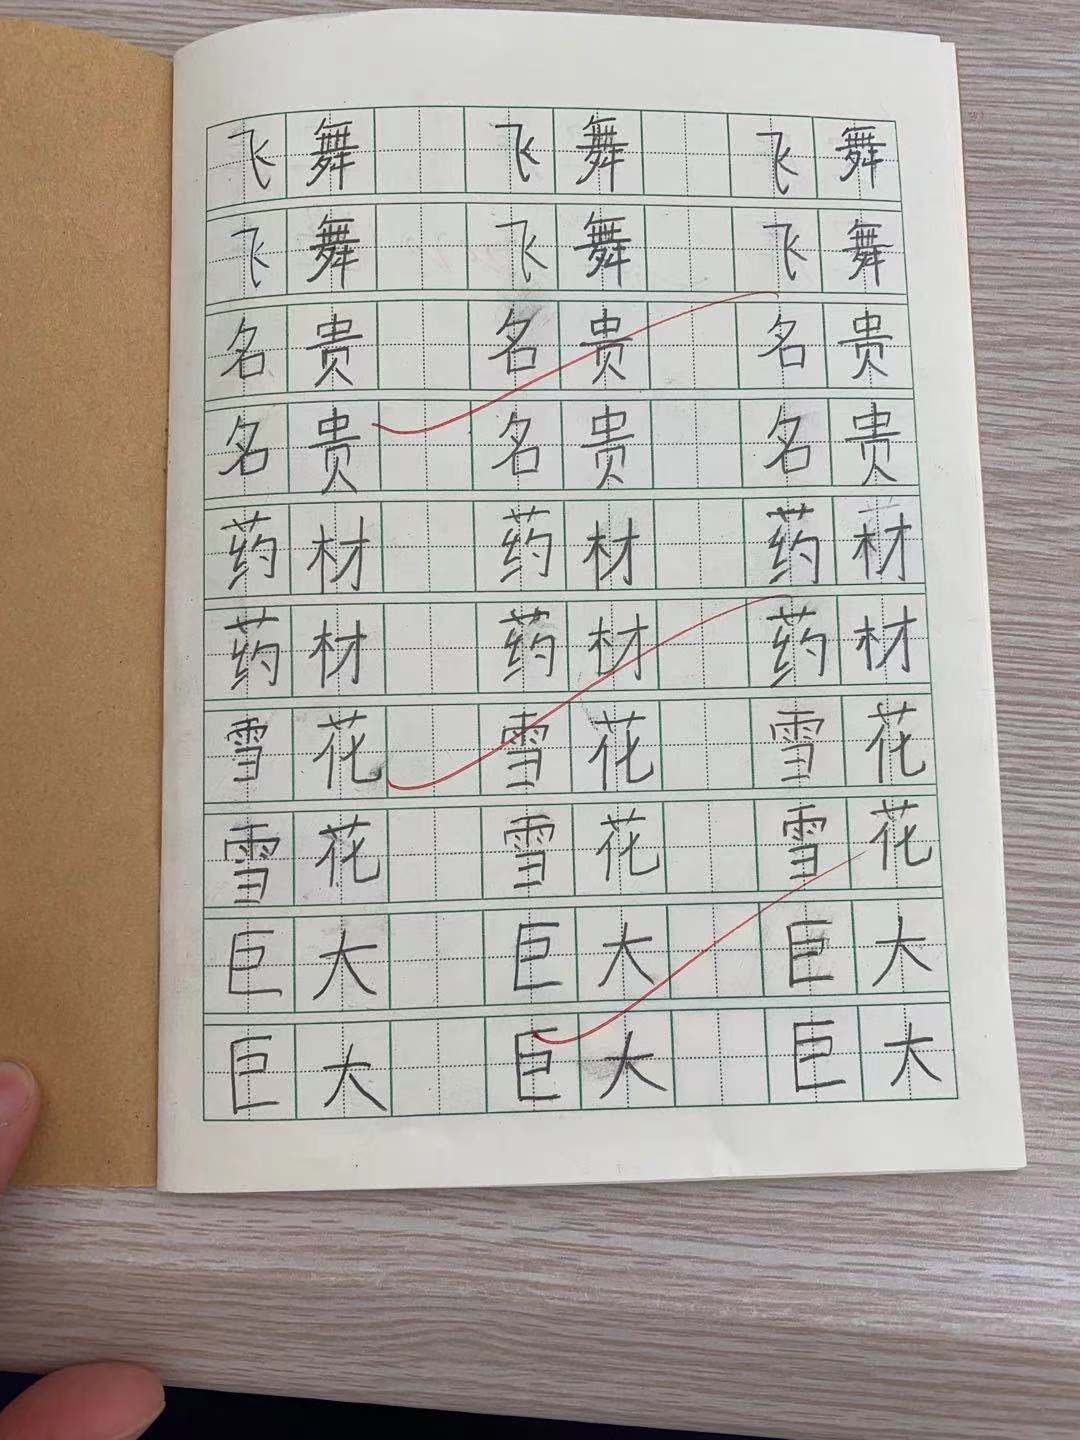 飞舞 飞舞 飞舞
飞舞 飞舞 飞舞
名贵 名贵 名贵
名贵 名贵 名贵
药材 药材 药材
药材 药材 药材
雪花 雪花 雪花
雪花 雪花 雪花
巨大 巨大 巨大
巨大 巨大 巨大